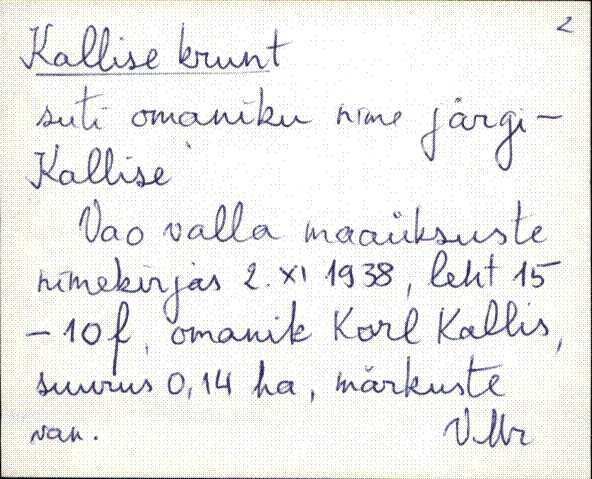 2
Kallise krunt
suti omaniku nime järgi –
Kallise
Vao valla maaüksuste
nimekirjas 2. XI 1938, leht 15
– 10 f, omanik Karl Kallis,
suurus 0,14 ha, märkuste